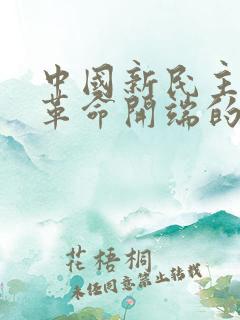 中國新民主
革命開端的
花梧桐
未经同意禁止转载